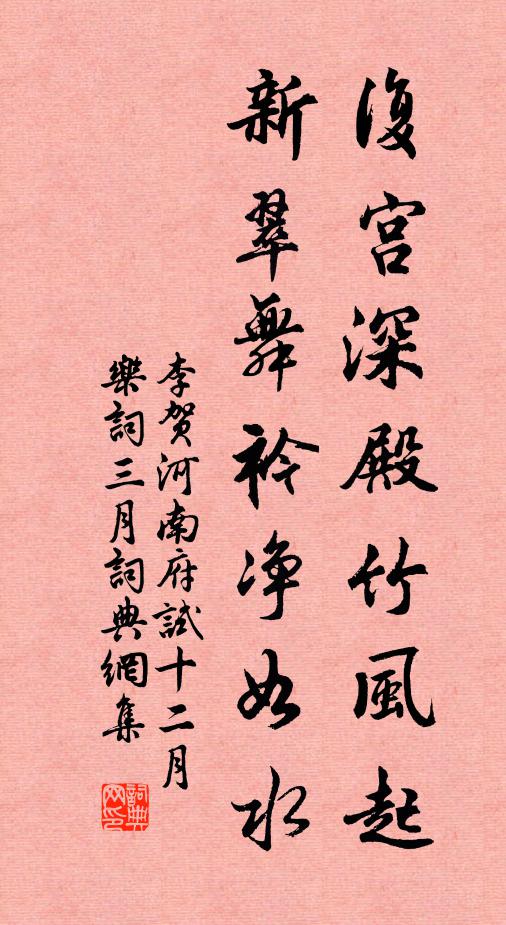 復宮深殿竹風起
新翠舞衿净如水
李贺河南府試十二月
樂詞三月詞典網集
詞典
网印